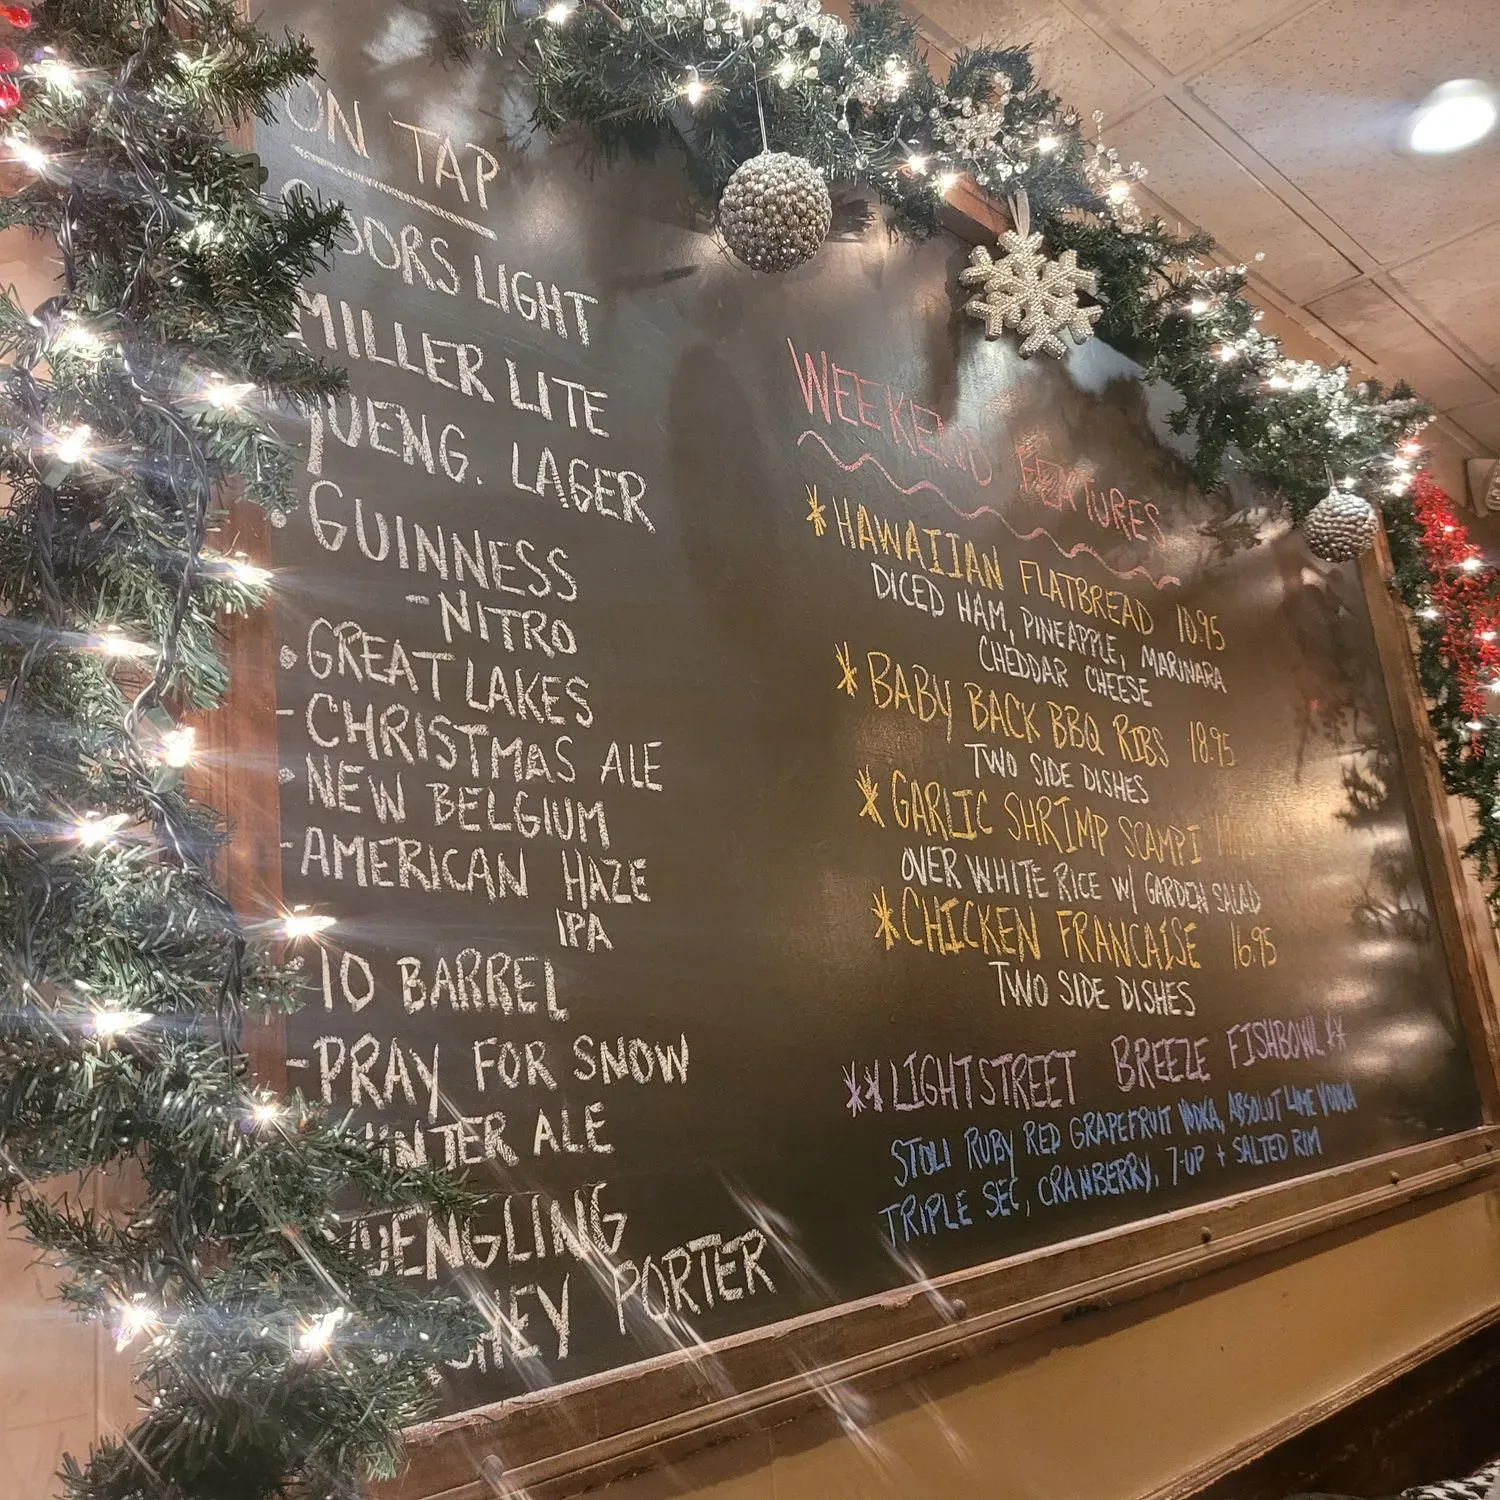 ON TAP
COORS LIGHT
MILLER LITE
YUENG. LAGER
GUINNESS
-NITRO
GREAT LAKES
-CHRISTMAS ALE
NEW BELGIUM
-AMERICAN HAZE
IPA
10 BARREL
-PRAY FOR SNOW
WINTER ALE
YUENGLING
PORTER
WEEKEND FEATURES
*HAWAIIAN FLATBREAD 10.95
DICED HAM, PINEAPPLE, MARINARA
CHEDDAR CHEESE
*BABY BACK BBQ RIBS 18.95
TWO SIDE DISHES
*GARLIC SHRIMP SCAMPI
OVER WHITE RICE W/ GARDEN SALAD
*CHICKEN FRANCAISE 16.95
TWO SIDE DISHES
**LIGHTSTREET BREEZE FISHBOWL**
STOLI RUBY RED GRAPEFRUIT VODKA, ABSOLUT LIME VODKA
TRIPLE SEC, CRANBERRY, 7-UP + SALTED RIM